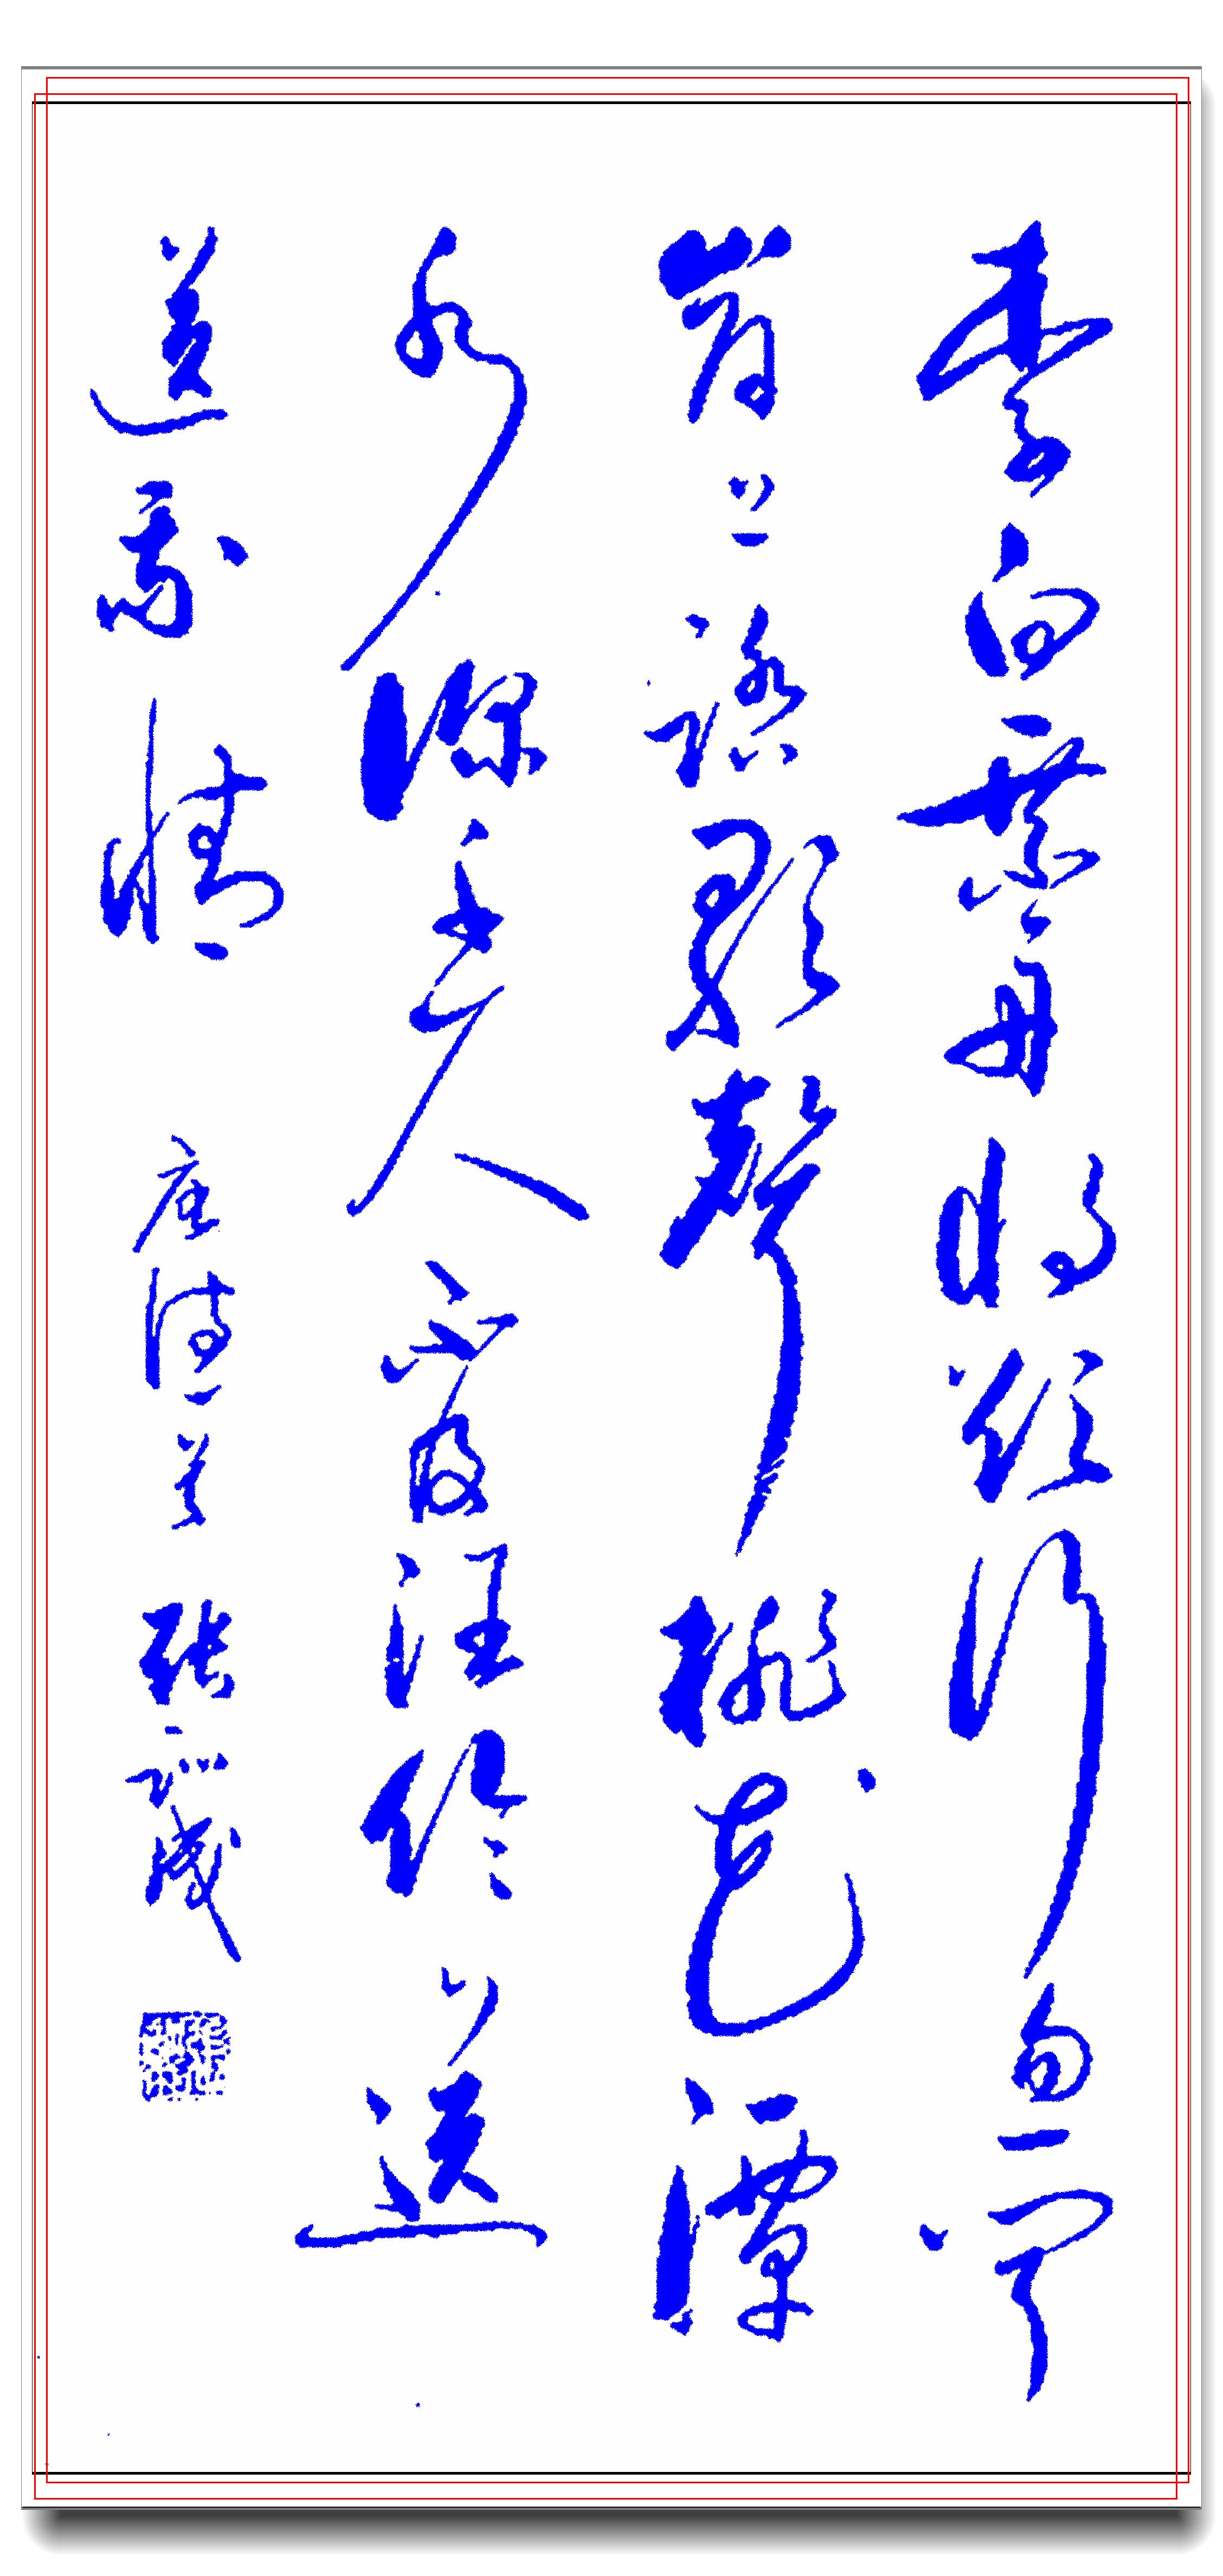 李白乘舟将欲行忽闻
岸上踏歌聲桃花潭
水深千尺不及汪伦送
送我情 唐诗一首 张